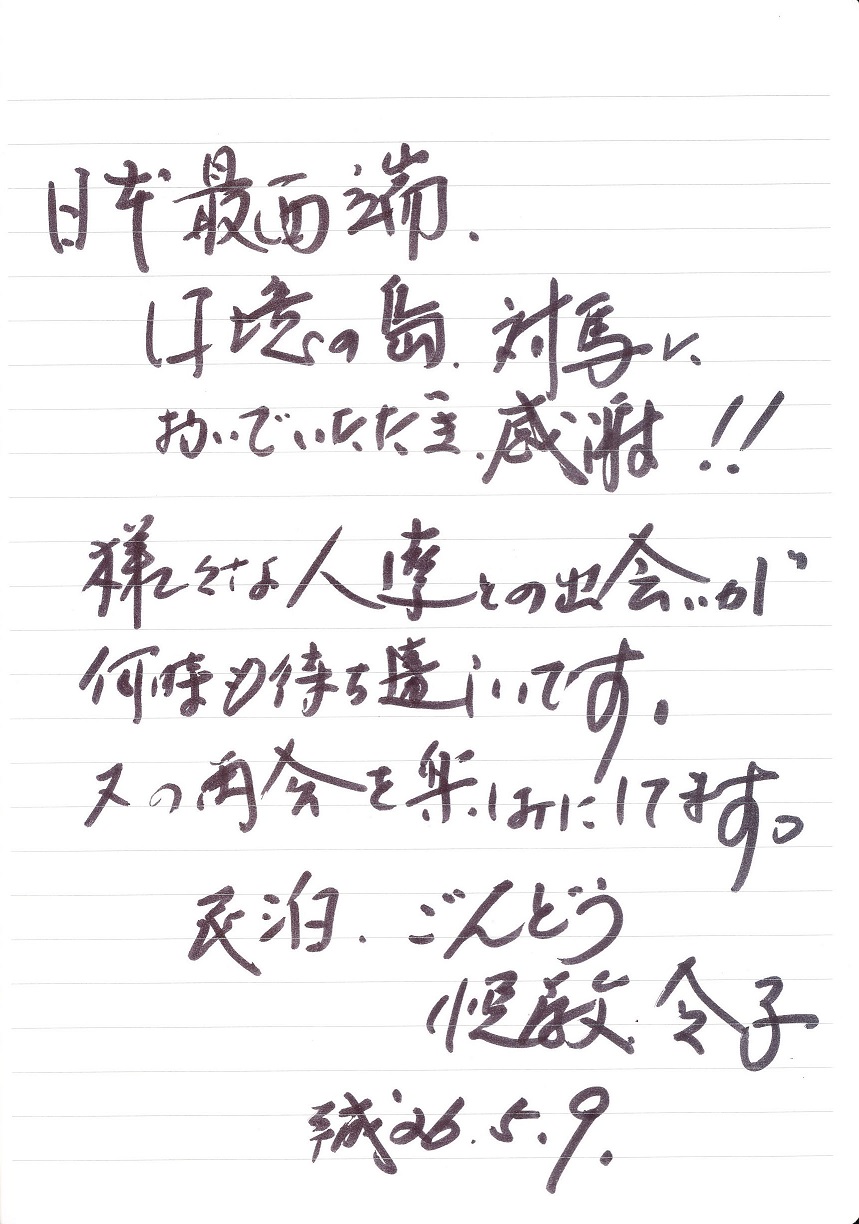 日本最西端、
国境の島、対馬に、
おいでいただき、感謝!!
様々な人達との出会いが
何時も待ち遠しいです。
又の再会を楽しみにしてます。
民泊. ごんどう
悦敏 令子
平成26.5.9.